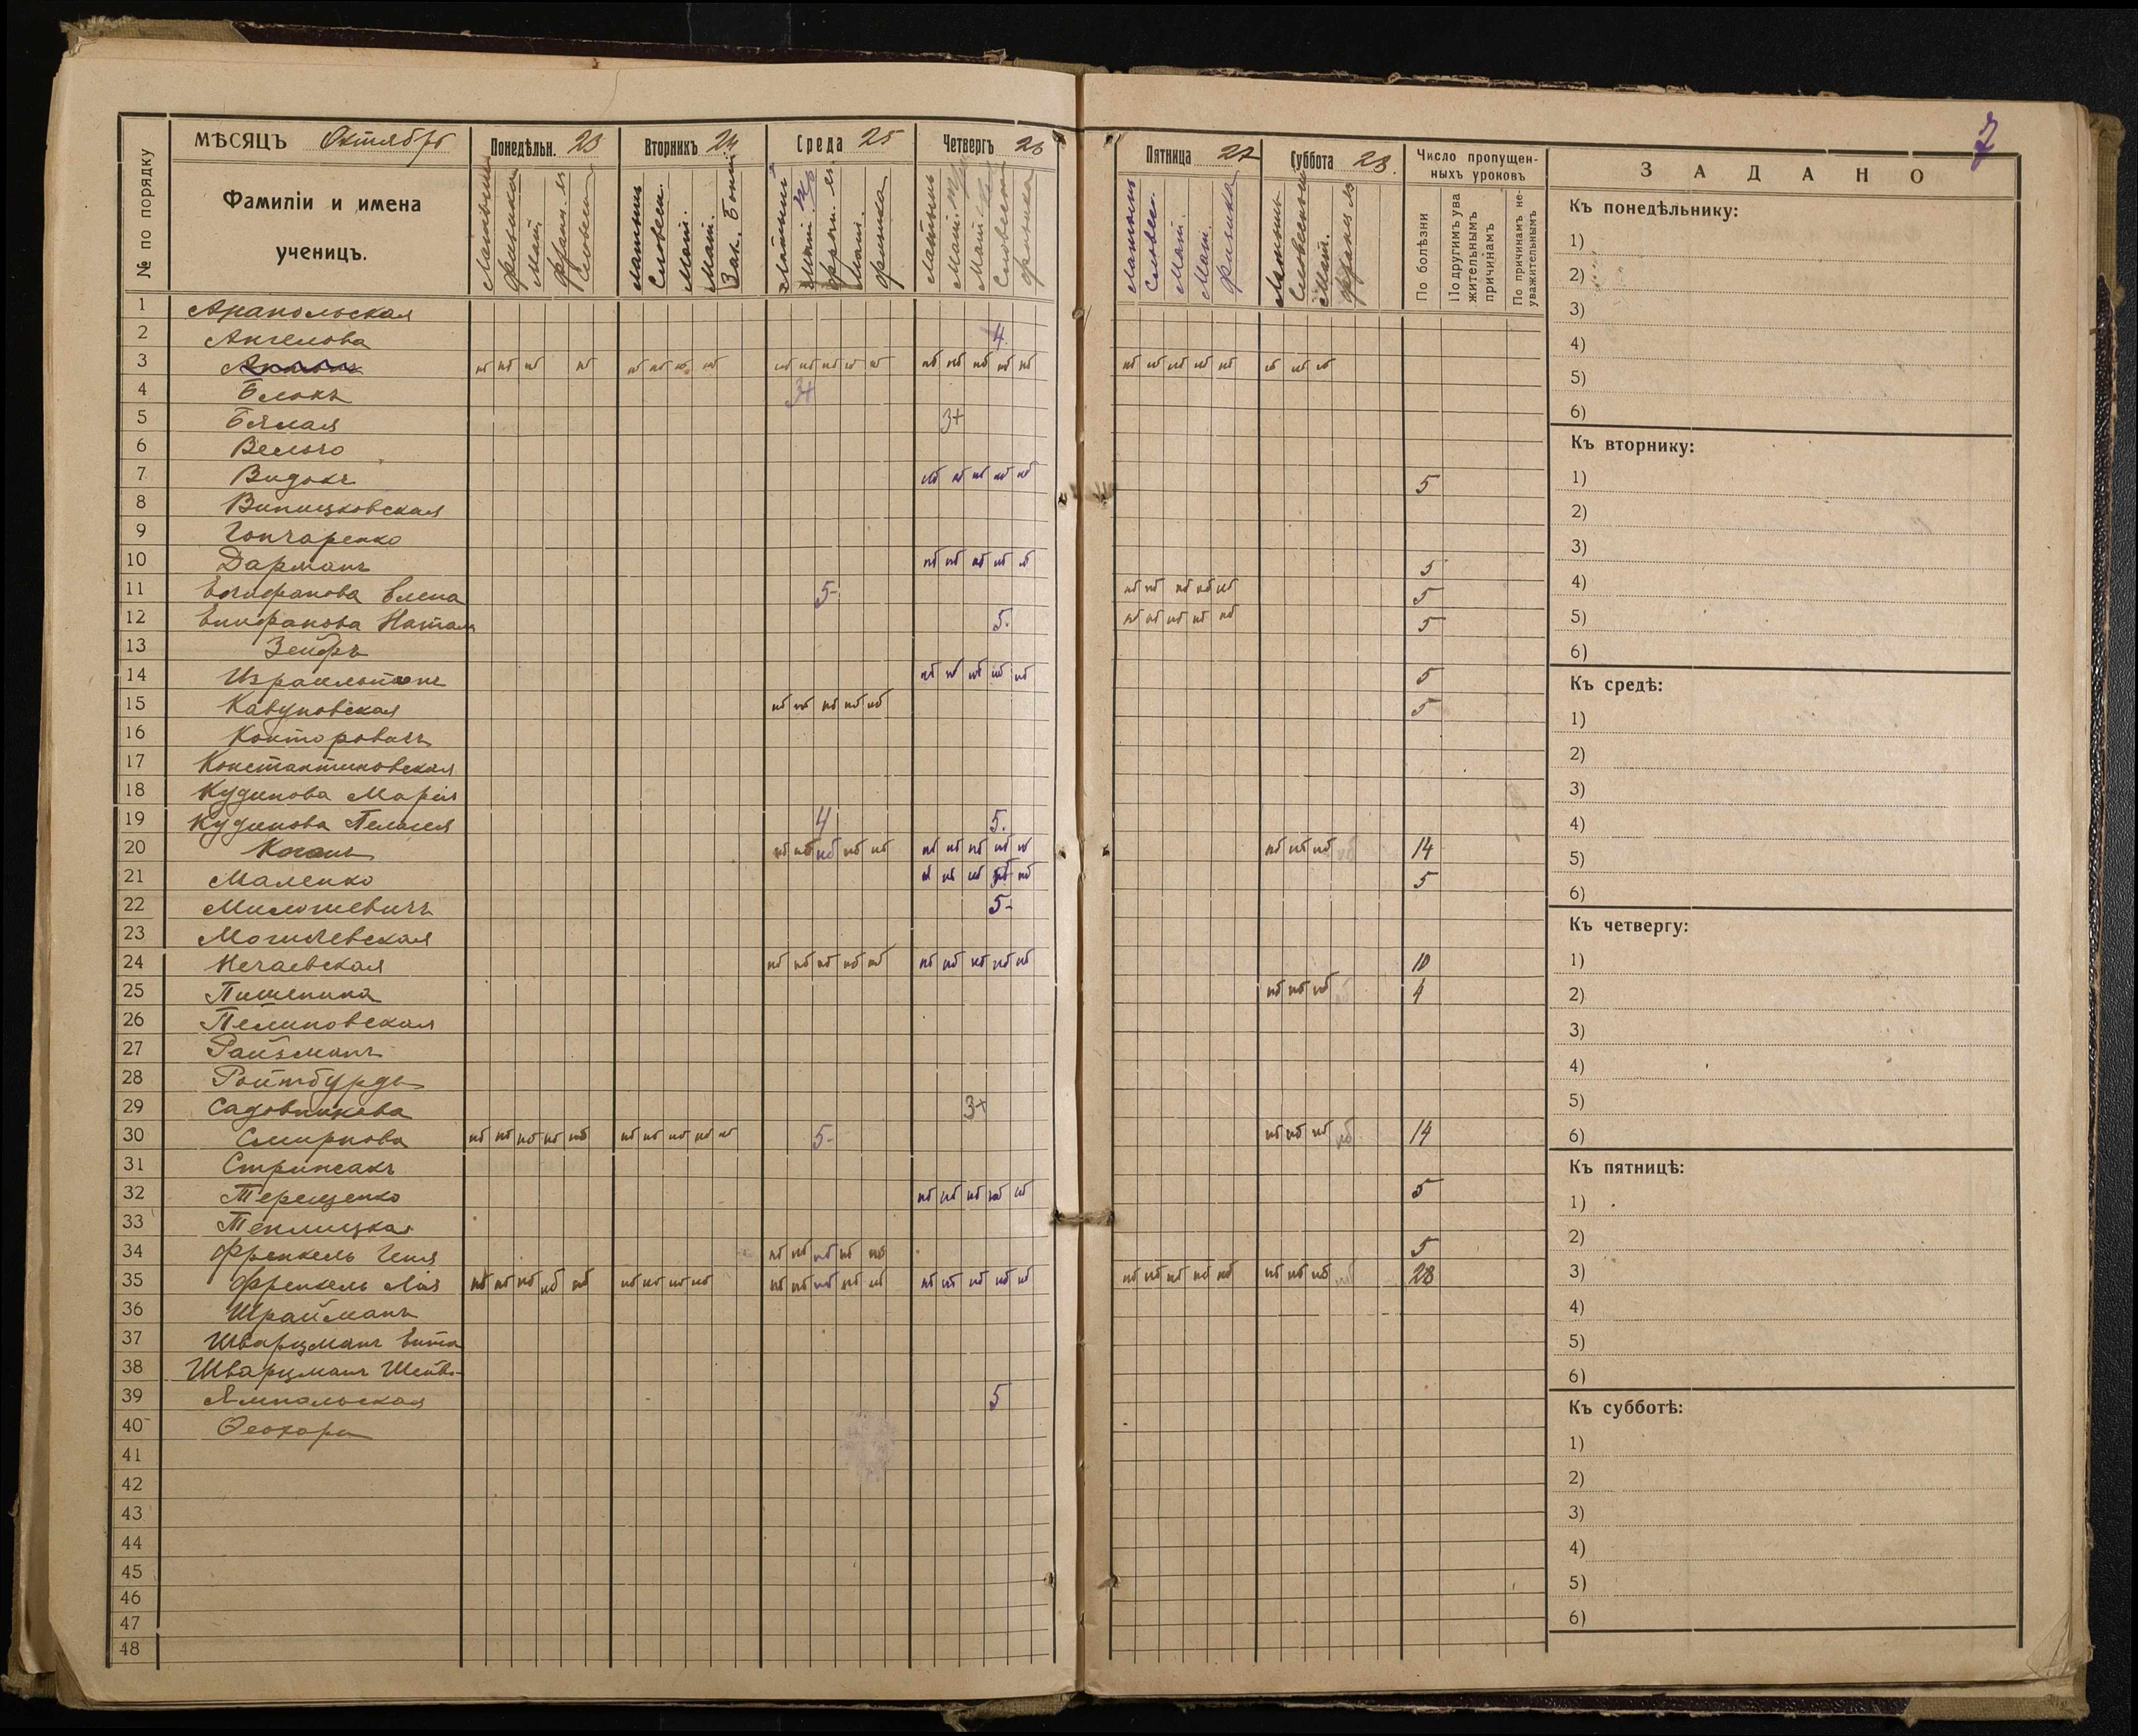 7
МѢСЯЦЪ Октябрь Понедѣльн. 23 Вторникъ 24 Среда 25 Четвергъ 26 Пятница 27 Суббота 28. Число пропущен-
ныхъ уроковъ
№ по порядку
Фамиліи и имена
ученицъ.
Латынь Физика Мат. Франц. яз Словесн.
Латынь Словесн. Мат. Мат. Зак. Божій
Латынь Мат. Франц. яз Мат. Физика
Латынь Мат. Мат. Словесн Физика
Латынь Словесн. Мат. Мат. Физика
Латынь Словесность Мат. Франц яз
По болѣзни
По другимъ ува
жительнымъ
причинамъ
По причинамъ не-
уважительнымъ
1 Анапольская
2 Ангелова 4
3 нб нб нб нб нб нб нб нб нб нб нб нб нб нб нб нб нб нб нб нб нб нб нб нб нб нб
4 Блокъ 3+
5 Бялая 3+
6 Вельго
7 Видокъ нб нб нб нб нб 5
8
9 Гончаренко
10 Дарманъ нб нб нб нб нб 5
11 Епифанова Елена 5- нб нб нб нб нб 5
12 Епифанова Натал 5. нб нб нб нб нб 5
13 Зейфъ
14 нб нб нб нб нб 5
15 Кавуновская нб нб нб нб нб 5
16 Канторовичъ
17 Константиновская
18 Кудинова Марія
19 Кудинова Пелагея 4 5.
20 Коганъ нб нб нб нб нб нб нб нб нб нб нб нб нб нб 14
21 Маленко нб нб нб нб нб 5
22 Милошевичъ 5-
23 Могилевская
24 Нечаевская нб нб нб нб нб нб нб нб нб нб 10
25 Пишенина нб нб нб нб 4
26 Пелиновская
27 Райзманъ
28 Ройтбурдъ
29 Садовникова 3+
30 Смирнова нб нб нб нб нб нб нб нб нб нб 5- нб нб нб нб 14
31 Стрижакъ
32 Терещенко нб нб нб нб нб 5
33 Теплицкая
34 Френкель Геня нб нб нб нб нб 5
35 Френкель Лія нб нб нб нб нб нб нб нб нб нб нб нб нб нб нб нб нб нб нб нб нб нб нб нб нб нб нб нб 28
36 Шрайманъ
37 Шварцманъ Ента
38 Шварцманъ
39 Ямпольская 5
40 Феохари
41
42
43
44
45
46
47
48
ЗАДАНО
Къ понедѣльнику:
1)
2)
3)
4)
5)
6)
Къ вторнику:
1)
2)
3)
4)
5)
6)
Къ средѣ:
1)
2)
3)
4)
5)
6)
Къ четвергу:
1)
2)
3)
4)
5)
6)
Къ пятницѣ:
1)
2)
3)
4)
5)
6)
Къ субботѣ:
1)
2)
3)
4)
5)
6)